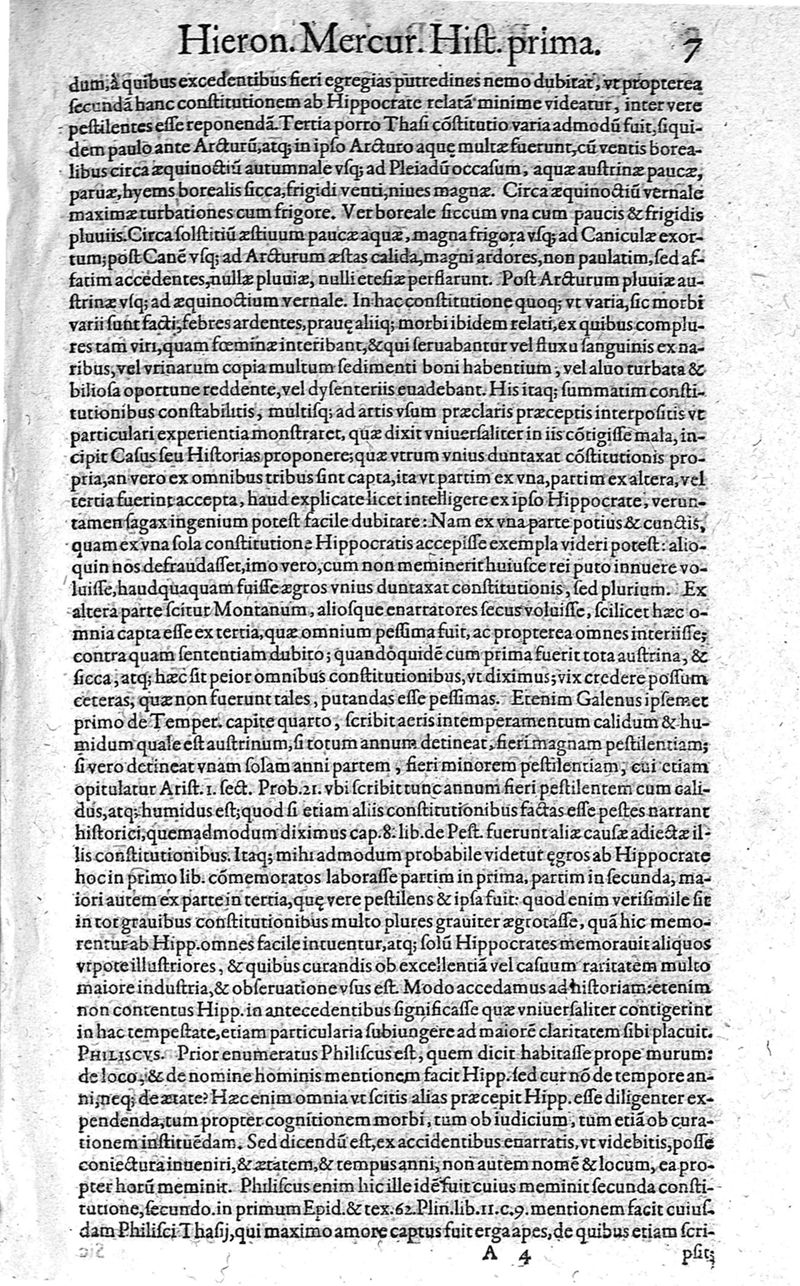 Hieron. Mercur. Hiſt. prima. 7
dum, à quibus excedentibus fieri egregias putredines nemo dubitat, vt propterea
ſecundā hanc conſtitutionem ab Hippocrate relatā minime videatur, inter vere
peſtilentes eſſe reponendā. Tertia porro Thaſi cōſtitutio varia admodū fuit, ſiqui-
dem paulo ante Arcturū, atq; in ipſo Arcturo aquę multæ fuerunt, cū ventis borea-
libus circa æquinoctiū autumnale vſq; ad Pleiadū occaſum, aquæ auſtrinæ paucæ,
paruæ, hyems borealis ſicca, frigidi venti, niues magnæ. Circa æquinoctiū vernale
maximæ turbationes cum frigore. Ver boreale ſiccum vna cum paucis & frigidis
pluuiis. Circa ſolſtitiū æſtiuum paucæ aquæ, magna frigora vſq; ad Caniculæ exor-
tum; poſt Canē vſq; ad Arcturum æſtas calida, magni ardores, non paulatim, ſed af-
fatim accedentes, nullæ pluuiæ, nulli eteſiæ perflarunt. Poſt Arcturum pluuiæ au-
ſtrinæ vſq; ad æquinoctium vernale. In hac conſtitutione quoq; vt varia, ſic morbi
varii ſunt facti, febres ardentes, prauę aliiq; morbi ibidem relati, ex quibus complu-
res tam viri, quam fœminæ interibant, & qui ſeruabantur vel fluxu ſanguinis ex na-
ribus, vel vrinarum copia multum ſedimenti boni habentium, vel aluo turbata &
bilioſa oportune reddente, vel dyſenteriis euadebant. His itaq; ſummatim conſti-
tutionibus conſtabilitis, multiſq; ad artis vſum præclaris præceptis interpoſitis vt
particulari experientia monſtraret, quæ dixit vniuerſaliter in iis cōtigiſſe mala, in-
cipit Caſus ſeu Hiſtorias proponere; quæ vtrum vnius duntaxat cōſtitutionis pro-
pria, an vero ex omnibus tribus ſint capta, ita vt partim ex vna, partim ex altera, vel
tertia fuerint accepta, haud explicate licet intelligere ex ipſo Hippocrate, verun-
tamen ſagax ingenium poteſt facile dubitare: Nam ex vna parte potius & cunctis,
quam ex vna ſola conſtitutione Hippocratis accepiſſe exempla videri poteſt: alio-
quin nos defraudaſſet, imo vero, cum non meminerit huiuſce rei puto innuere vo-
luiſſe, haudquaquam fuiſſe ægros vnius duntaxat conſtitutionis, ſed plurium. Ex
altera parte ſcitur Montanum, alioſque enarratores ſecus voluiſſe, ſcilicet hæc o-
mnia capta eſſe ex tertia, quæ omnium peſſima fuit, ac propterea omnes interiiſſe;
contra quam ſententiam dubito; quandoquidē cum prima fuerit tota auſtrina, &
ſicca, atq; hæc ſit peior omnibus conſtitutionibus, vt diximus; vix credere poſſum
ceteras, quæ non fuerunt tales, putandas eſſe peſſimas. Etenim Galenus ipſemet
primo de Temper. capite quarto, ſcribit aeris intemperamentum calidum & hu-
midum quale eſt auſtrinum, ſi totum annum detineat, fieri magnam peſtilentiam;
ſi vero detineat vnam ſolam anni partem, fieri minorem peſtilentiam, cui etiam
opitulatur Ariſt. 1. ſect. Prob. 21. vbi ſcribit tunc annum fieri peſtilentem cum cali-
dus, atq; humidus eſt; quod ſi etiam aliis conſtitutionibus factas eſſe peſtes narrant
hiſtorici, quemadmodum diximus cap. 8. lib. de Peſt. fuerunt aliæ cauſæ adiectæ il-
lis conſtitutionibus. Itaq; mihi admodum probabile videtur ęgros ab Hippocrate
hoc in primo lib. cōmemoratos laboraſſe partim in prima, partim in ſecunda, ma-
iori autem ex parte in tertia, quę vere peſtilens & ipſa fuit: quod enim veriſimile ſit
in tot grauibus conſtitutionibus multo plures grauiter ægrotaſſe, quā hic memo-
rentur ab Hipp. omnes facile intuentur, atq; ſolū Hippocrates memorauit aliquos
vtpote illuſtriores, & quibus curandis ob excellentiā vel caſuum raritatem multo
maiore induſtria, & obſeruatione vſus eſt. Modo accedamus ad hiſtoriam: etenim
non contentus Hipp. in antecedentibus ſignificaſſe quæ vniuerſaliter contigerint
in hac tempeſtate, etiam particularia ſubiungere ad maiorē claritatem ſibi placuit.
PHILISCVS. Prior enumeratus Philiſcus eſt, quem dicit habitaſſe prope murum:
de loco, & de nomine hominis mentionem facit Hipp. ſed cur nō de tempore an-
ni, neq; de ætate? Hæc enim omnia vt ſcitis alias præcepit Hipp. eſſe diligenter ex-
pendenda, tum propter cognitionem morbi, tum ob iudicium, tum etiā ob cura-
tionem inſtituēdam. Sed dicendū eſt, ex accidentibus enarratis, vt videbitis, poſſe
coniectura inueniri, & ætatem, & tempus anni, non autem nomē & locum, ea pro-
pter horū meminit. Philiſcus enim hic ille idē fuit cuius meminit ſecunda conſti-
tutione, ſecundo. in primum Epid. & tex. 62. Plin. lib. 11. c. 9. mentionem facit cuiuſ-
dam Philiſci Thaſij, qui maximo amore captus fuit erga apes, de quibus etiam ſcri-
A 4 pſit;